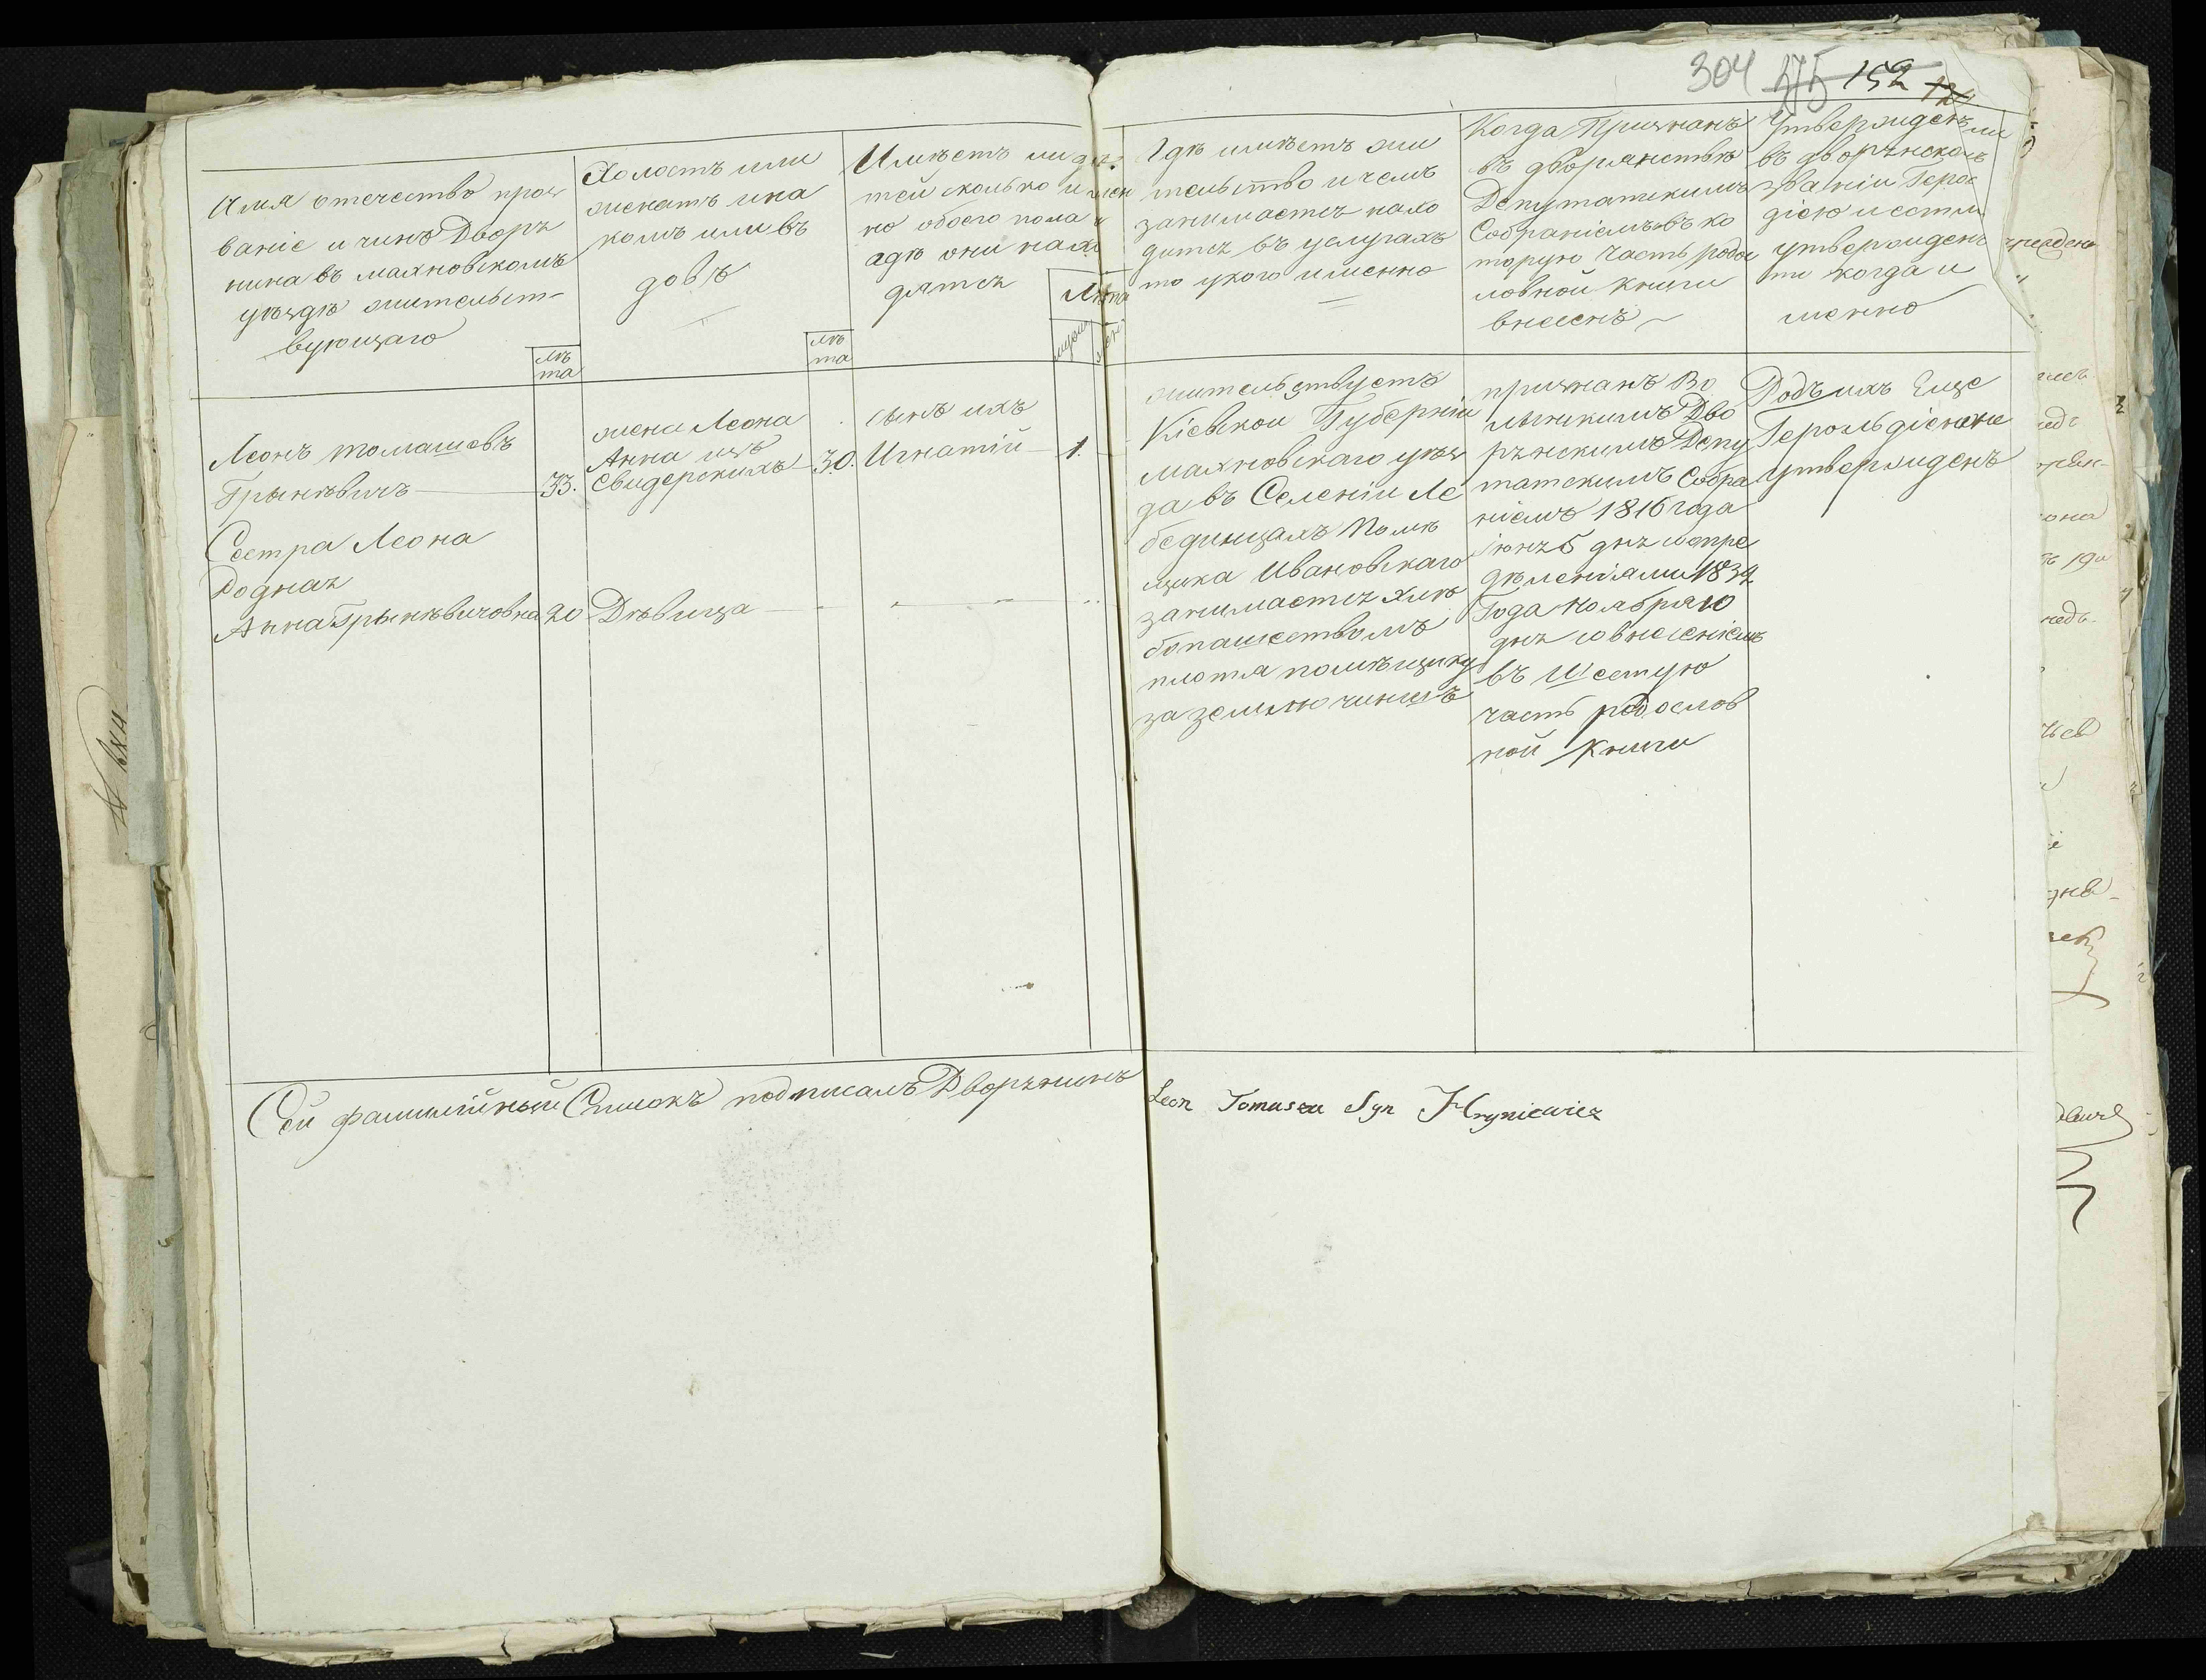 304 375 152 12
Имя отечество проз
ваніе и чинъ Дворя
нина въ махновскомъ
уѣздѣ жительст-
вующаго
лѣ
та
Холостъ или
женатъ и на
комъ или въ
довѣ
лѣ
та
Имѣетъ ли дѣ
тей сколько и имен
но обоего пола и
гдѣ они нахо
дятся
Лѣта
Гдѣ имѣетъ жи
тельство и чемъ
занимается нахо
дится въ услугахъ
то у кого именно
Когда Признанъ
въ дворянствѣ
Депутатскимъ
Собраніемъ въ ко
торую Часть родос
ловной книги
внесенъ
Утвержденъ ли
въ дворянскомъ
званіи Герол
діею и естли
утвержденъ
то когда и
менно
Леонъ томашевъ
Грынѣвичъ 33.
жена Леона
Анна изъ
Свидерскихъ 30.
сынъ ихъ
Игнатій 1.
Сестра Леона
Родная
Анна Грынѣвичовна 20 Дѣвица
жительствуетъ
Кіевской Губерніи
махновскаго уѣз
да въ Селеніи Ле
бединцахъ Помѣ
щика Ивановскаго
занимается хлѣ
бопашествомъ
плотя помѣщику
за землю чиншъ
признанъ Во
лынскимъ Дво
рянскимъ Депу
татскимъ Собра
ніемъ 1816 года
Іюня 5 дня и опре
дѣленіями 1834
Года Ноября 10
дня со внесеніемъ
въ Шестую
часть родослов
ной Книги
Родъ ихъ Еще
Герольдіею не
утвержденъ
Сей фамилійный Списокъ подписалъ Дворянинъ Leon Tomasza Syn Hryniewicz